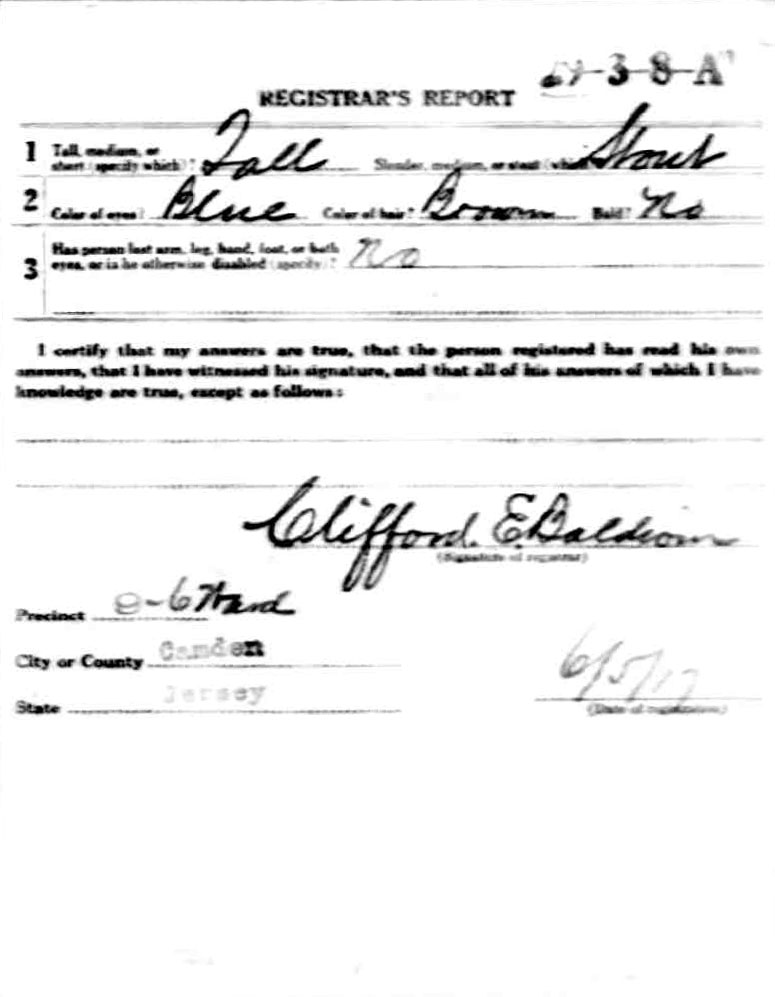 3-8-A
REGISTRAR'S REPORT
1 Tall, medium, or short (specify which)? Tall Slender, medium, or stout (which Stout
2 Color of eyes? Blue Color of hair? Brown Bald? No
3 Has person lost arm, leg, hand, foot, or both
eyes, or is he otherwise disabled (specify)? No
I certify that my answers are true, that the person registered has read his own
answers, that I have witnessed his signature, and that all of his answers of which I have
knowledge are true, except as follows:
Clifford E. Baldwin
(Signature of registrar)
Precinct 8-6 Ward
City or County Camden
State Jersey
6/5/17
(Date of registration)